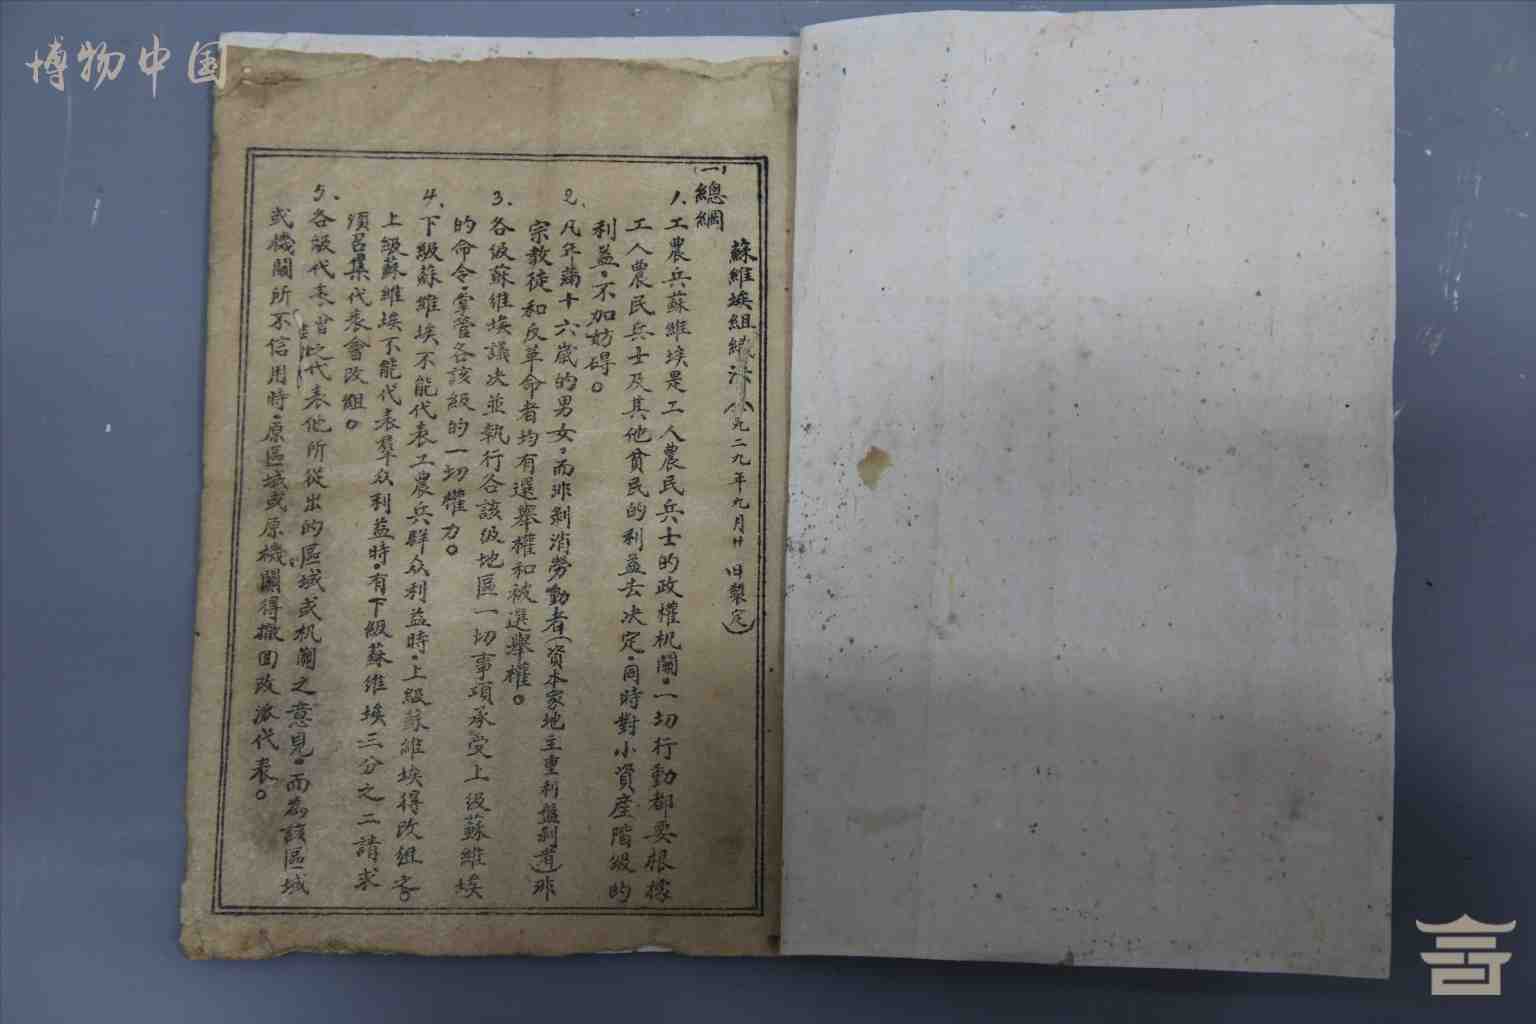 博物中国
蘇維埃組織法（一九二九年九月廿 日製定）
(一)總綱
1、工農兵蘇維埃是工人農民兵士的政權机關。一切行動都要根據
工人農民兵士及其他貧民的利益去决定。同時對小資産階級的
利益。不加妨碍。
2、凡年滿十六歲的男女。而非剝消勞動者（資本家地主重利盤剝者）非
宗教徒和反革命者均有選舉權和被選舉權。
3、各级蘇维埃議决並執行各該级地區一切事項承受上级蘇維埃
的命令。掌管各該級的一切權力。
4、下級蘇維埃不能代表工農兵群众利益時。上級蘇維埃得改组
上級蘇維埃不能代表羣众利益時。有下級蘇维埃三分之二請求
須召集代表會改組。
5、各級代表會之代表他所從出的區域或机關之意見。而為該區域
或機關所不信用時。原區域或原機關得撤囬改派代表。